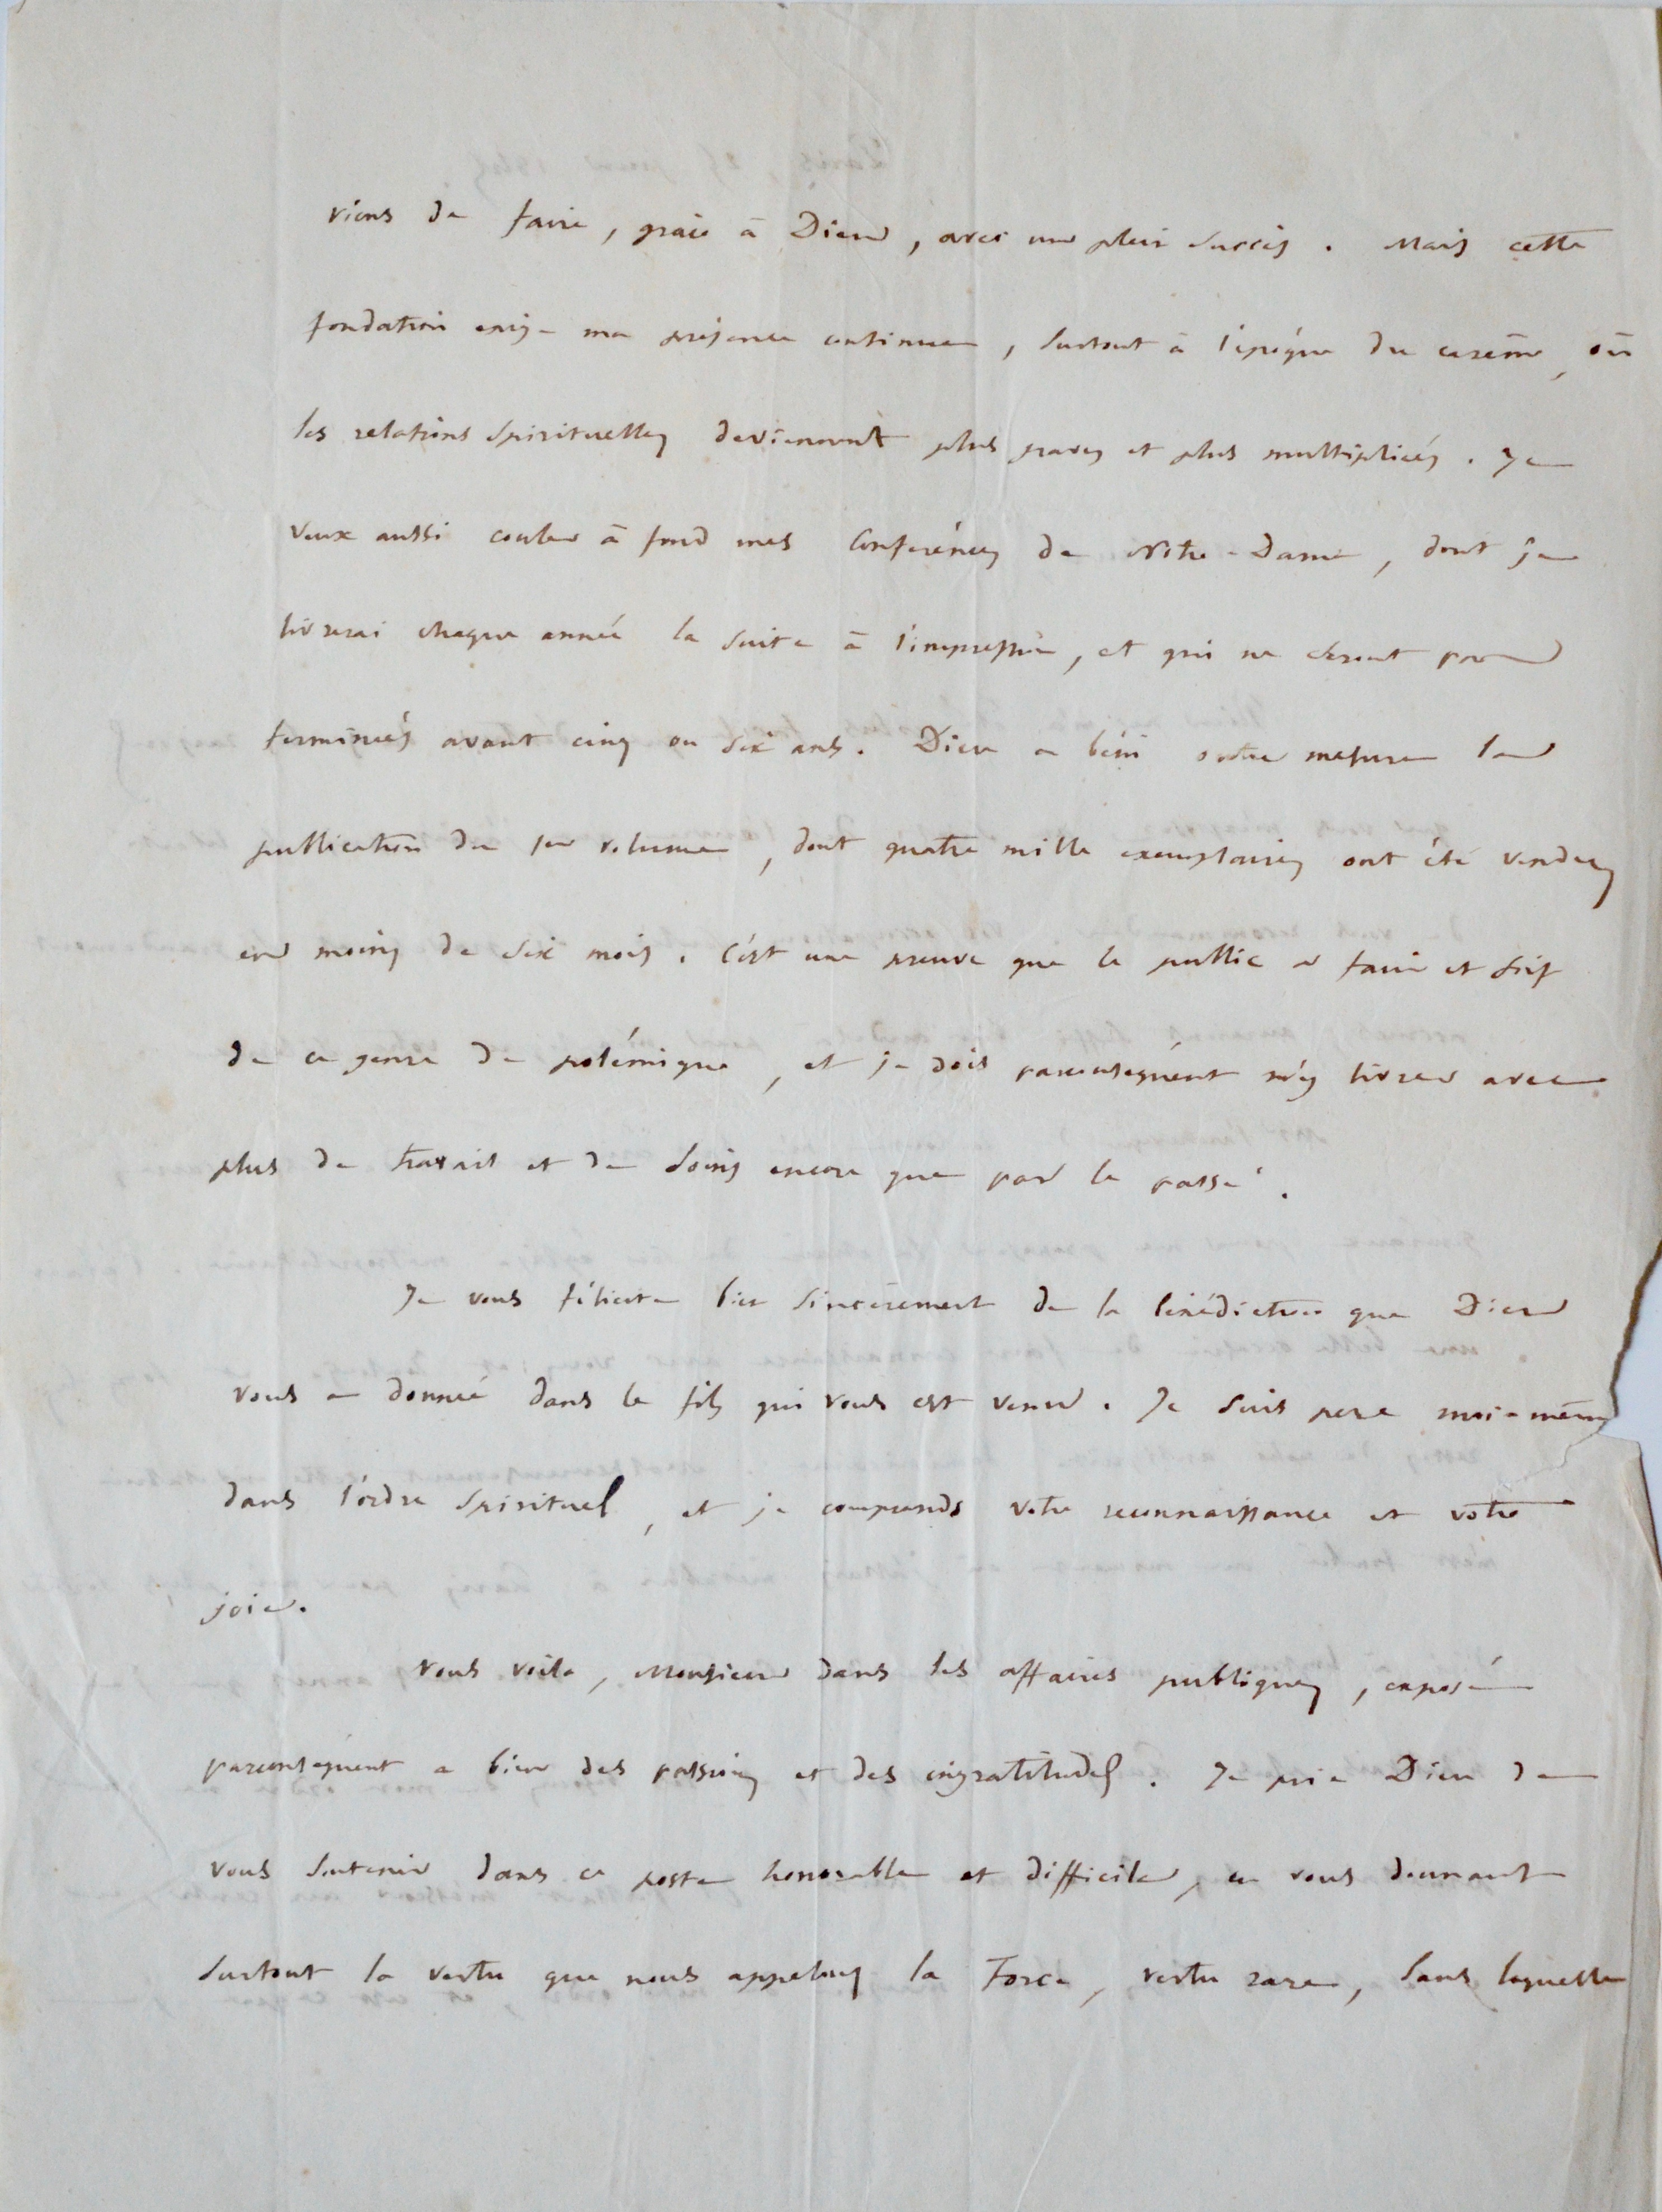 viens de faire, grâce à Dieu, avec un plein succès. Mais cette
fondation exige ma présence continue, surtout à l'époque du carême, où
les relations spirituelles deviennent plus graves et plus multipliées. Je
veux aussi couler à fond mes Conférences de Notre-Dame, dont je
livrerai chaque année la suite à l'impression, et qui ne seront pas
terminées avant cinq ou six ans. Dieu a béni outre mesure la
publication du 1er volume, dont quatre mille exemplaires ont été vendus
en moins de six mois. C'est une preuve que le public a faim et soif
de ce genre de polémique, et je dois parconséquent m'y livrer avec
plus de travail et de soins encore que par le passé.
Je vous félicite bien sincèrement de la bénédiction que Dieu
vous a donnée dans le fils qui vous est venu. Je suis père moi-même
dans l'ordre spirituel, et je comprends votre reconnaissance et votre
joie.
Vous voilà, Monsieur dans les affaires publiques, exposé
parconséquent a bien des passions et des ingratitudes. Je prie Dieu de
vous soutenir dans ce poste honorable et difficile, en vous donnant
surtout la vertu que nous appelons la Force, vertu rare, sans laquelle